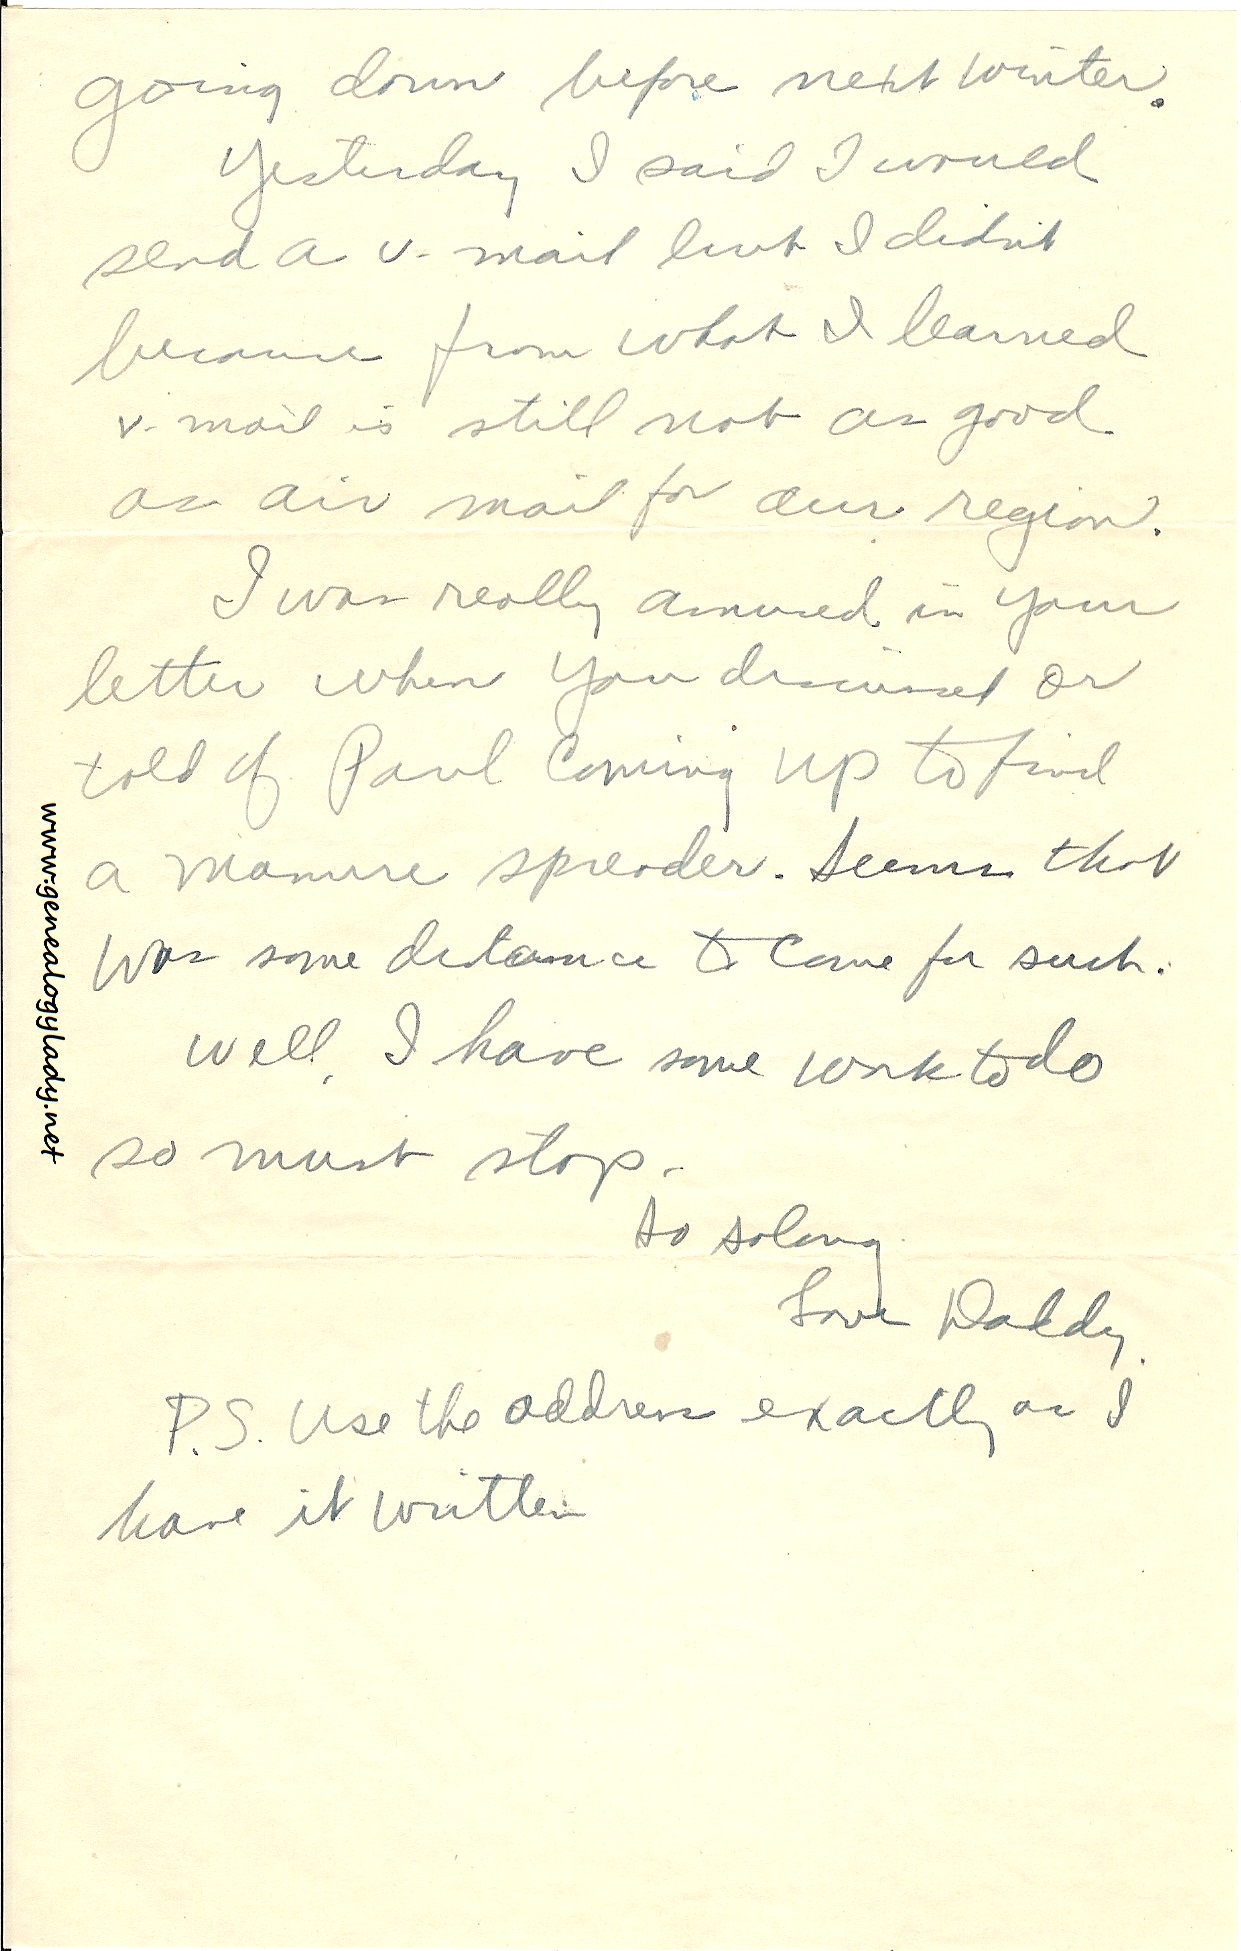 going down before next winter.
Yesterday I said I would
send a v-mail but I didn't
because from what I learned
v-mail is still not as good
as air mail for our region.
I was really amused in your
letter when you discussed or
told of Paul coming up to find
a manure spreader. Seems that
was some distance to come for such.
Well, I have some work to do
so must stop.
So solong
Love Daddy.
P.S. Use the address exactly as I
have it written
www.genealogylady.net